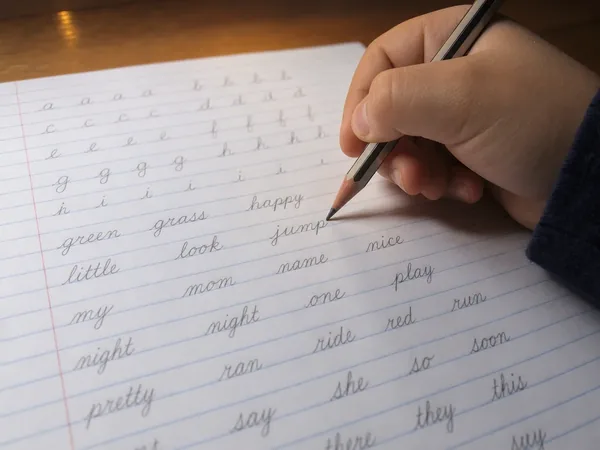 a a a a b b b b
c c c c d d d d
e e e e f f f f
g g g g h h h h
h i i i i i i
green grass happy
little look jump
my mom name nice
night night one play
pretty ran ride red run
say she so soon
there they this